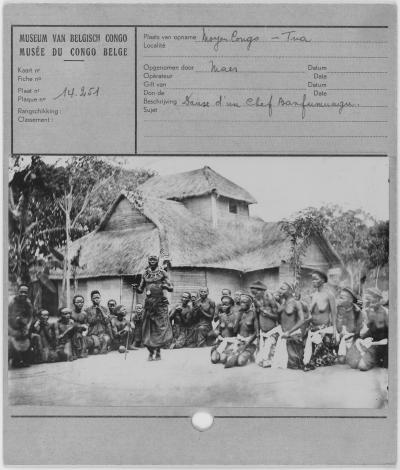 MUSEUM VAN BELGISCH CONGO
MUSÉE DU CONGO BELGE
Kaart nr
Fiche no
Plaat nr
Plaque no 14.251
Rangschikking :
Classement :
Plaats van opname Moyen Congo - Tua
Localité
Opgenomen door Maes Datum
Opérateur Date
Gift van Datum
Don de Date
Beschrijving Danse d'un Chef
Sujet